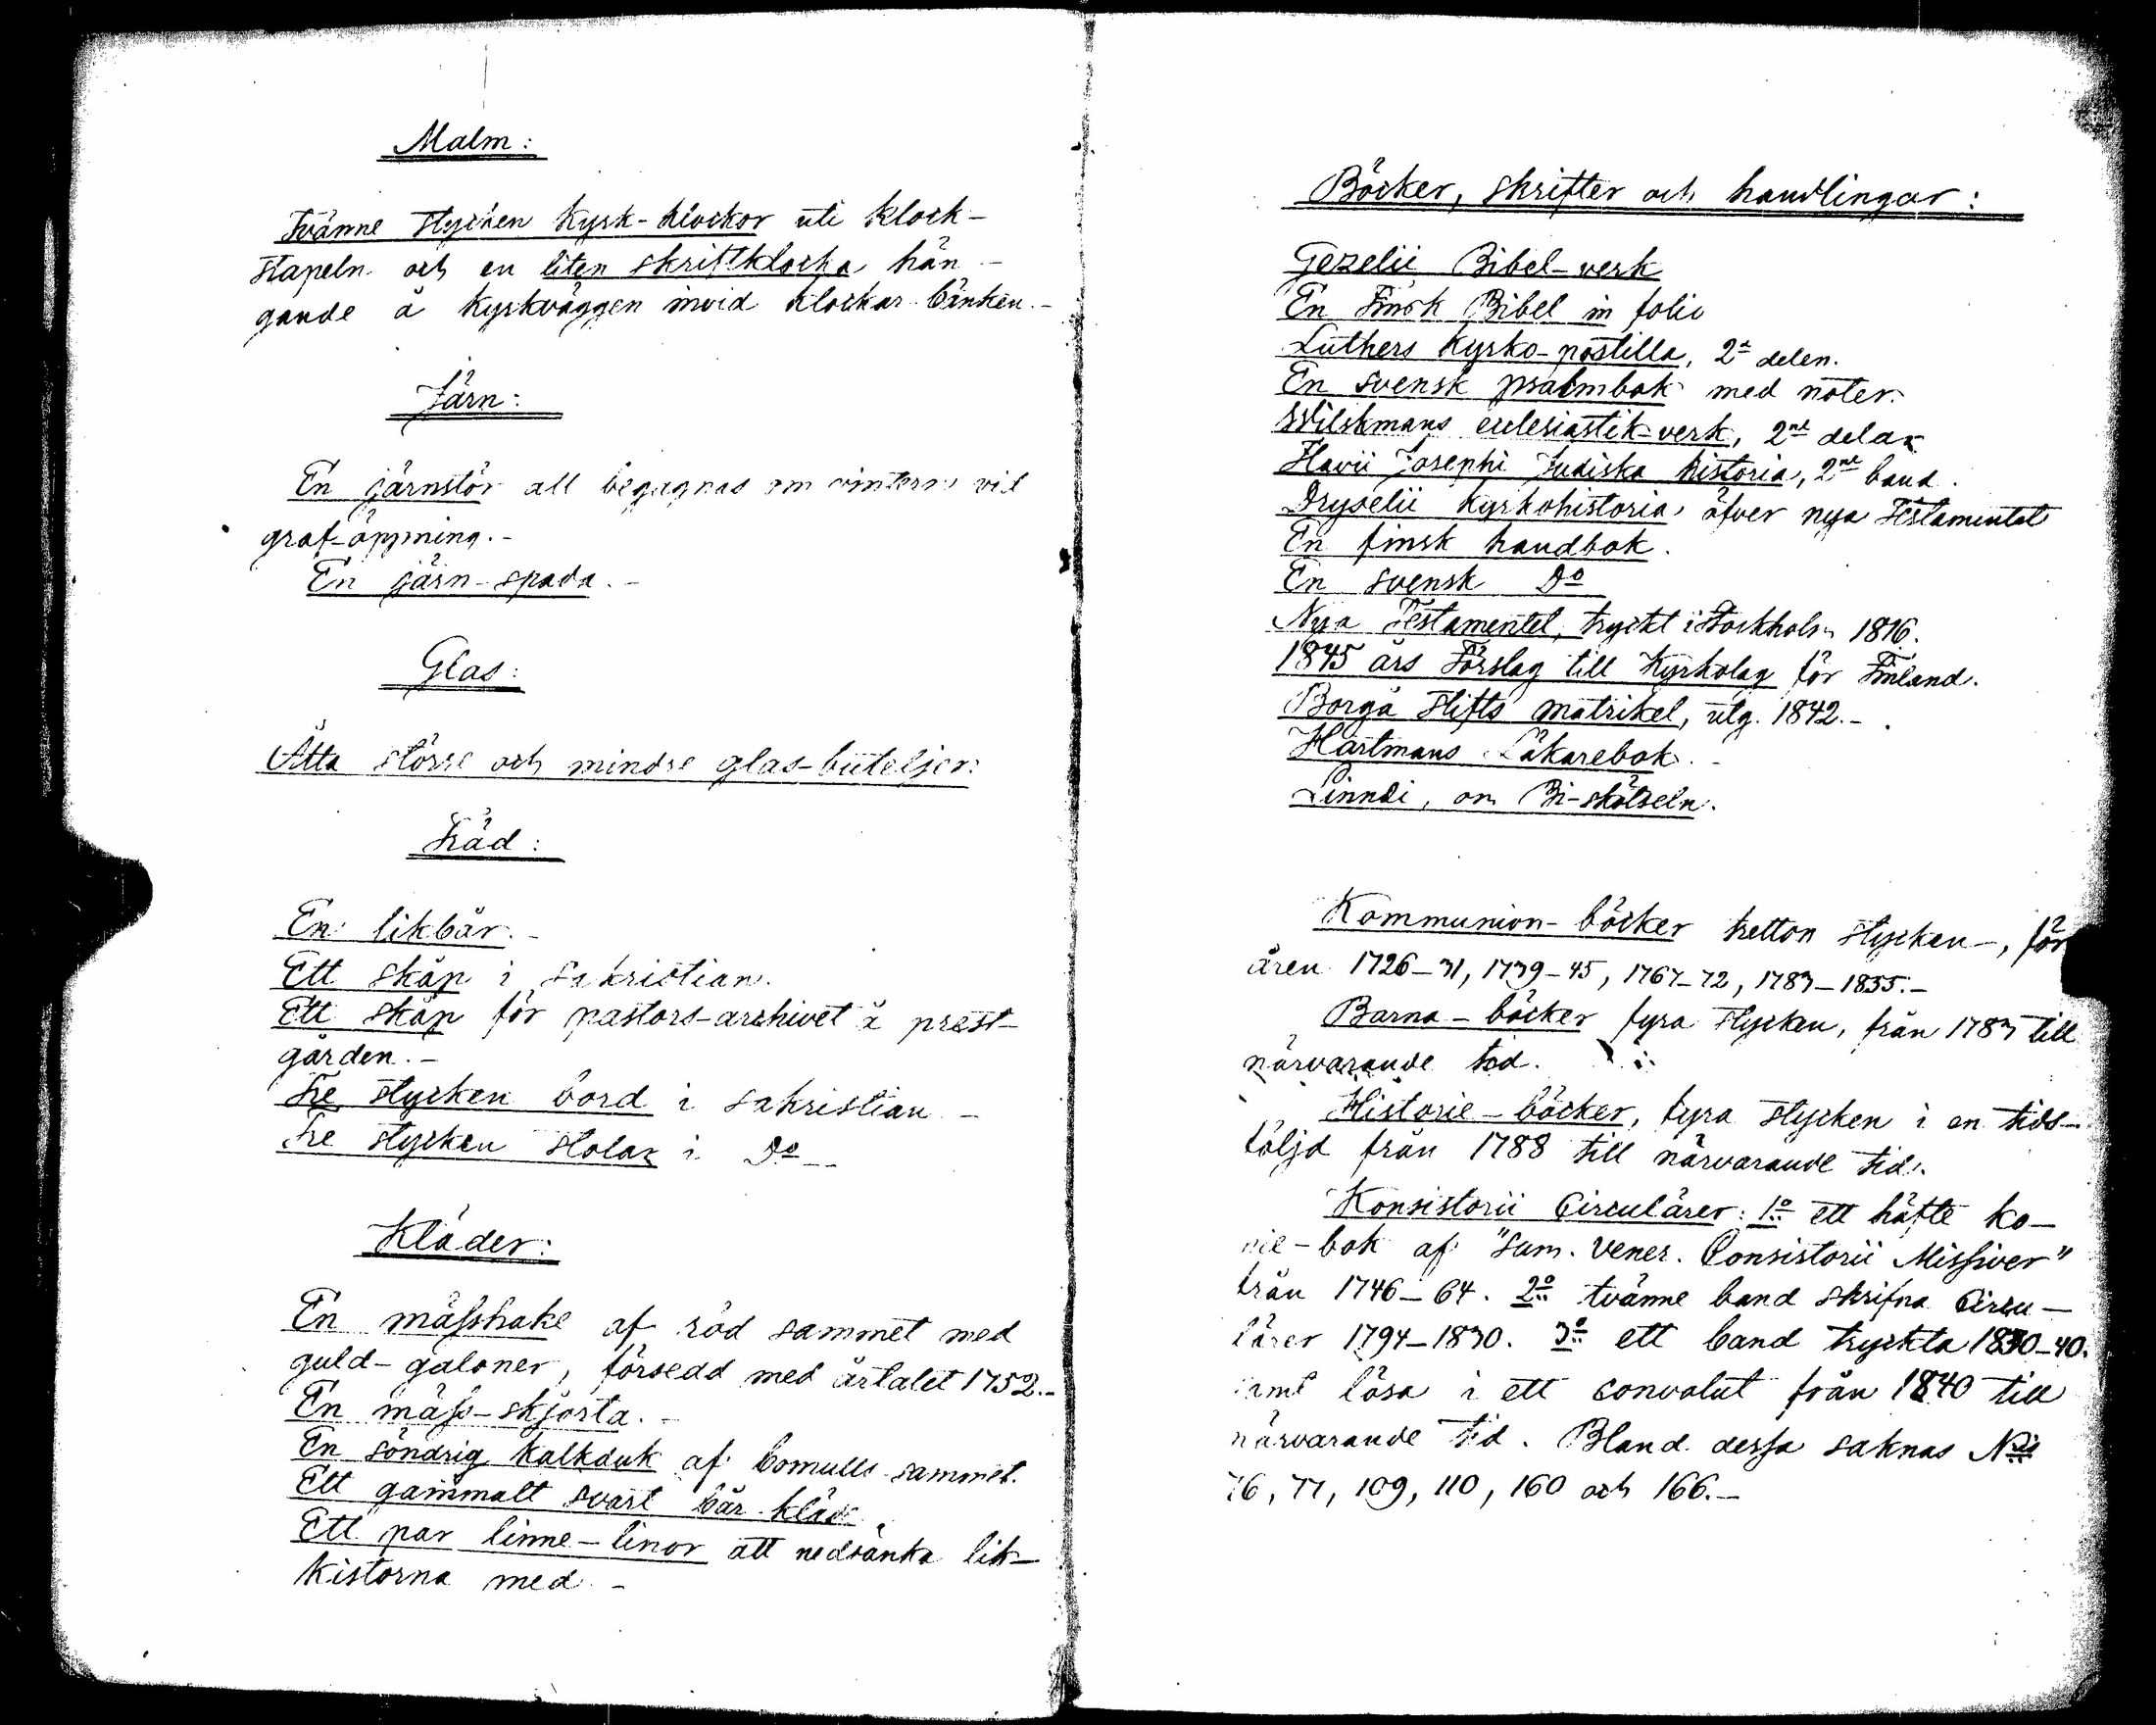 Malm:
Tvänne stycken Kyrk-klockor uti klock-
stapeln och en liten skriftklocka hän-
gande å kyrkväggen invid klockar-bänken.-
Järn:
En järnstör att begagnas om vintern vid
graf-öppning.-
En järn-spada.-
Glas:
Åtta större och mindre glas-buteljer:
Träd:
En likbår.-
Ett skåp i sakristian.
Ett skåp för pastors-archivet å prest-
gården.-
Tre stycken bord i sakristian -
Tre stycken stolar i Do --
Kläder:
En mässhake af röd sammet med
guld-galoner, försedd med årtalet 1752.-
En mäss-skjorta.-
En söndrig kalkduk af bomulls-sammet.
Ett gammalt svart bår-kläde.
Ett par linne-linor att nedsänka lik-
kistorna med -
Böcker, skrifter och handlingar:
Gezelii Bibel-verk
En Finsk Bibel in folio
Luthers Kyrko-postilla, 2a delen.
En svensk psalmbok med noter.
Wilskmans ecclesiastik-verk, 2ne delar
Flavii Josephi Judiska historia, 2ne band.
Dryselii Kyrkohistoria öfver nya Testamentet
En finsk handbok.
En svensk Do
Nya Testamentet, tryckt i Stockholm 1816.
1845 års Förslag till Kyrkolag för Finland.
Borgå Stifts matrikel, utg. 1842.-
Hartmans Läkarebok.-
Linndi, om Bi-skötseln.
Kommunion-böcker tretton stycken-, för
åren 1726-31, 1739-45, 1767-72, 1783-1855.-
Barna-böcker fyra stycken, från 1783 till
närvarande tid.
Historie-böcker, fyra stycken i en tids-
följd från 1788 till närvarande tid.
Konsistorii Circulärer: 1o ett häfte ko-
pie-bok af "Sum. Vener. Consistorii Missiver"
från 1746-64. 2o tvänne band skrifna Circu-
lärer 1794-1830. 3o ett band tryckta 1830-40.
samt lösa i ett convolut från 1840 till
närvarande tid. Bland dessa saknas Nris
76, 77, 109, 110, 160 och 166.-